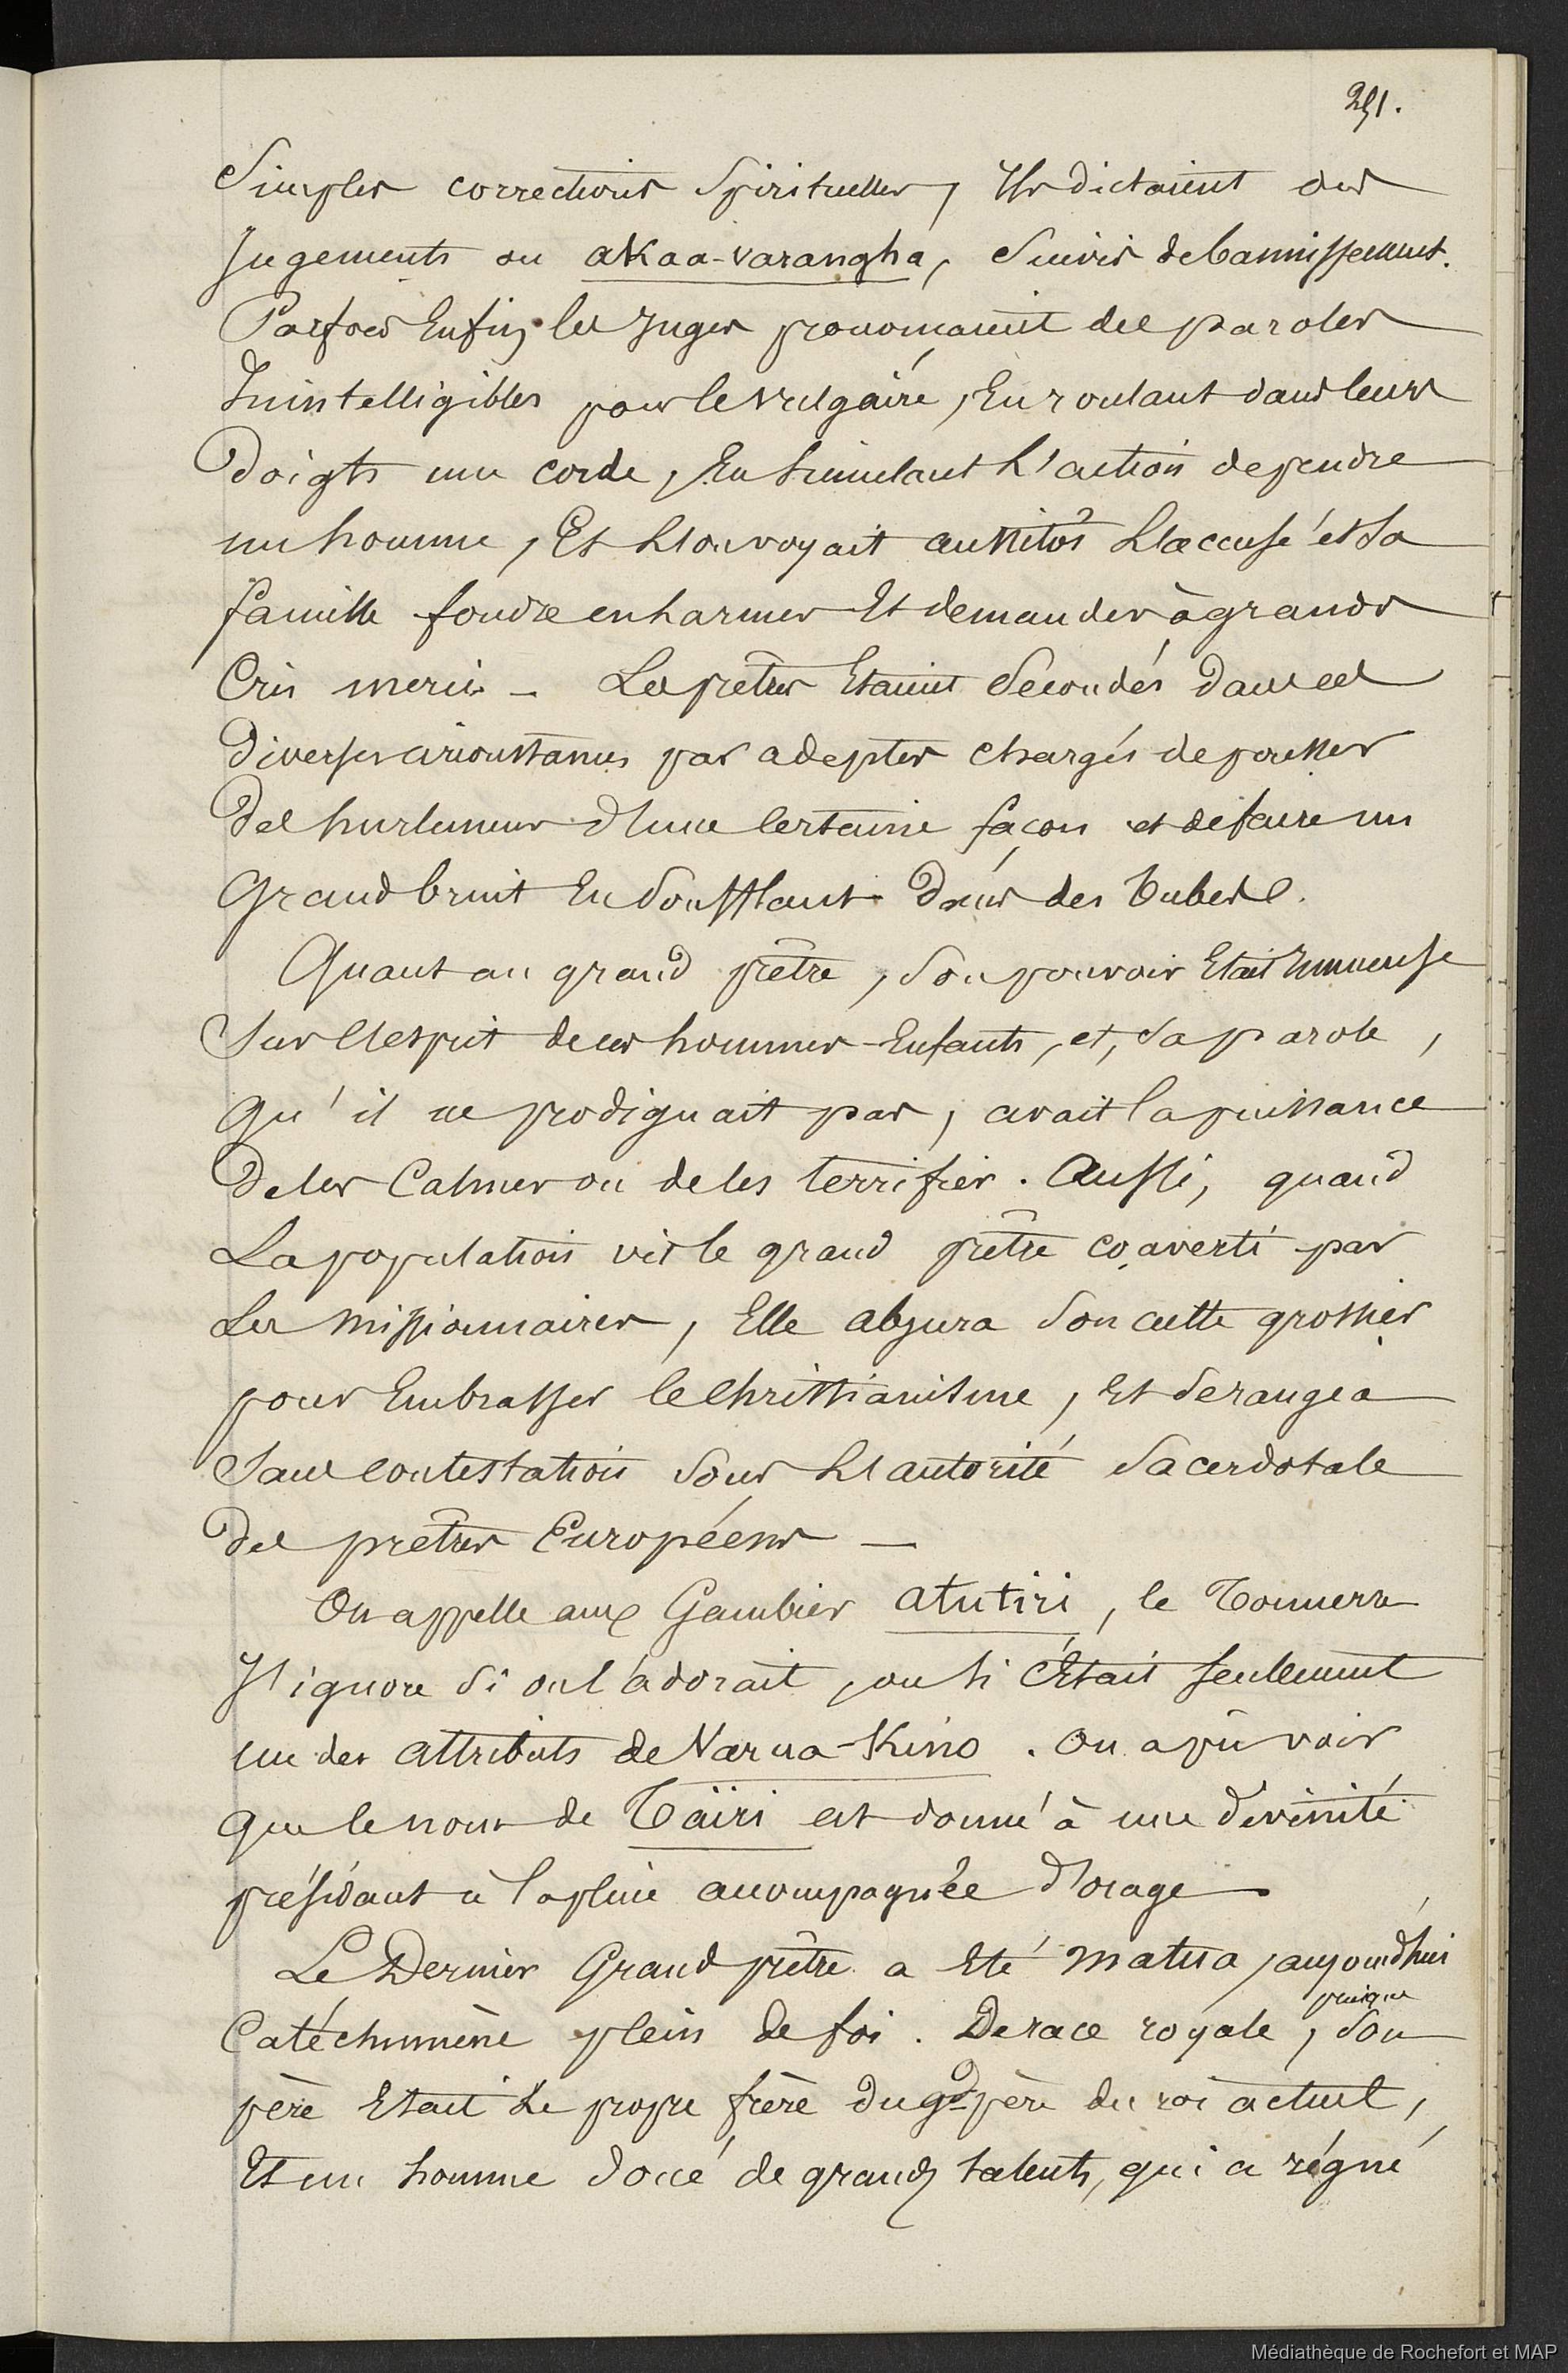 291.
Simples corrections Spirituelles, Ils dictaient des
Jugements ou akaa-varangha, Suivis de bannissement.
Parfois Enfin les Juges prononcaient des paroles
Inintelligibles pour le vulgaire, En roulant dans leurs
Doigts une corde, En simulant L'action de pendre
un homme, Et L'on voyait aussitôt L'accusé et Sa
famille fondre en larmes Et demander à grands
Cris merci - Les prêtres Etaient Secondés dans ces
Diverses circonstances par adeptes chargés de pousser
Des hurlements d'une certaine façon et de faire un
Grand bruit En Soufflant dans des tubes.
Quant au grand prêtre, Son pouvoir Etait Immense
Sur l'esprit de ces hommes-Enfants, et, Sa parole,
Qu'il ne prodiguait pas, avait la puissance
De les Calmer ou de les terrifier. Aussi, quand
La population vit le grand prêtre converti par
Les missionnaires, Elle abjura Son culte grossier
pour Embrasser le Christianisme, Et Se rangea
Sans contestation Sous L'autorité Sacerdotale
Des prêtres Européens —
On appelle aux Gambier atutiri, le Tonnerre
J'ignore Si on l'adorait, ou Si c'Etait Seulement
un des attributs de Narua-Kino. On a pu voir
Que le nom de Taïri est donné à une divinité
présidant à la pluie accompagnée d'orage
Le Dernier Grand prêtre a Eté matua, aujourd'hui
Catéchumène plein de foi. De race royale, puisque Son
père Etait Le propre frère du gd père du roi actuel,
Et un homme doué de grands talents, qui a régné
Médiathèque de Rochefort et MAP